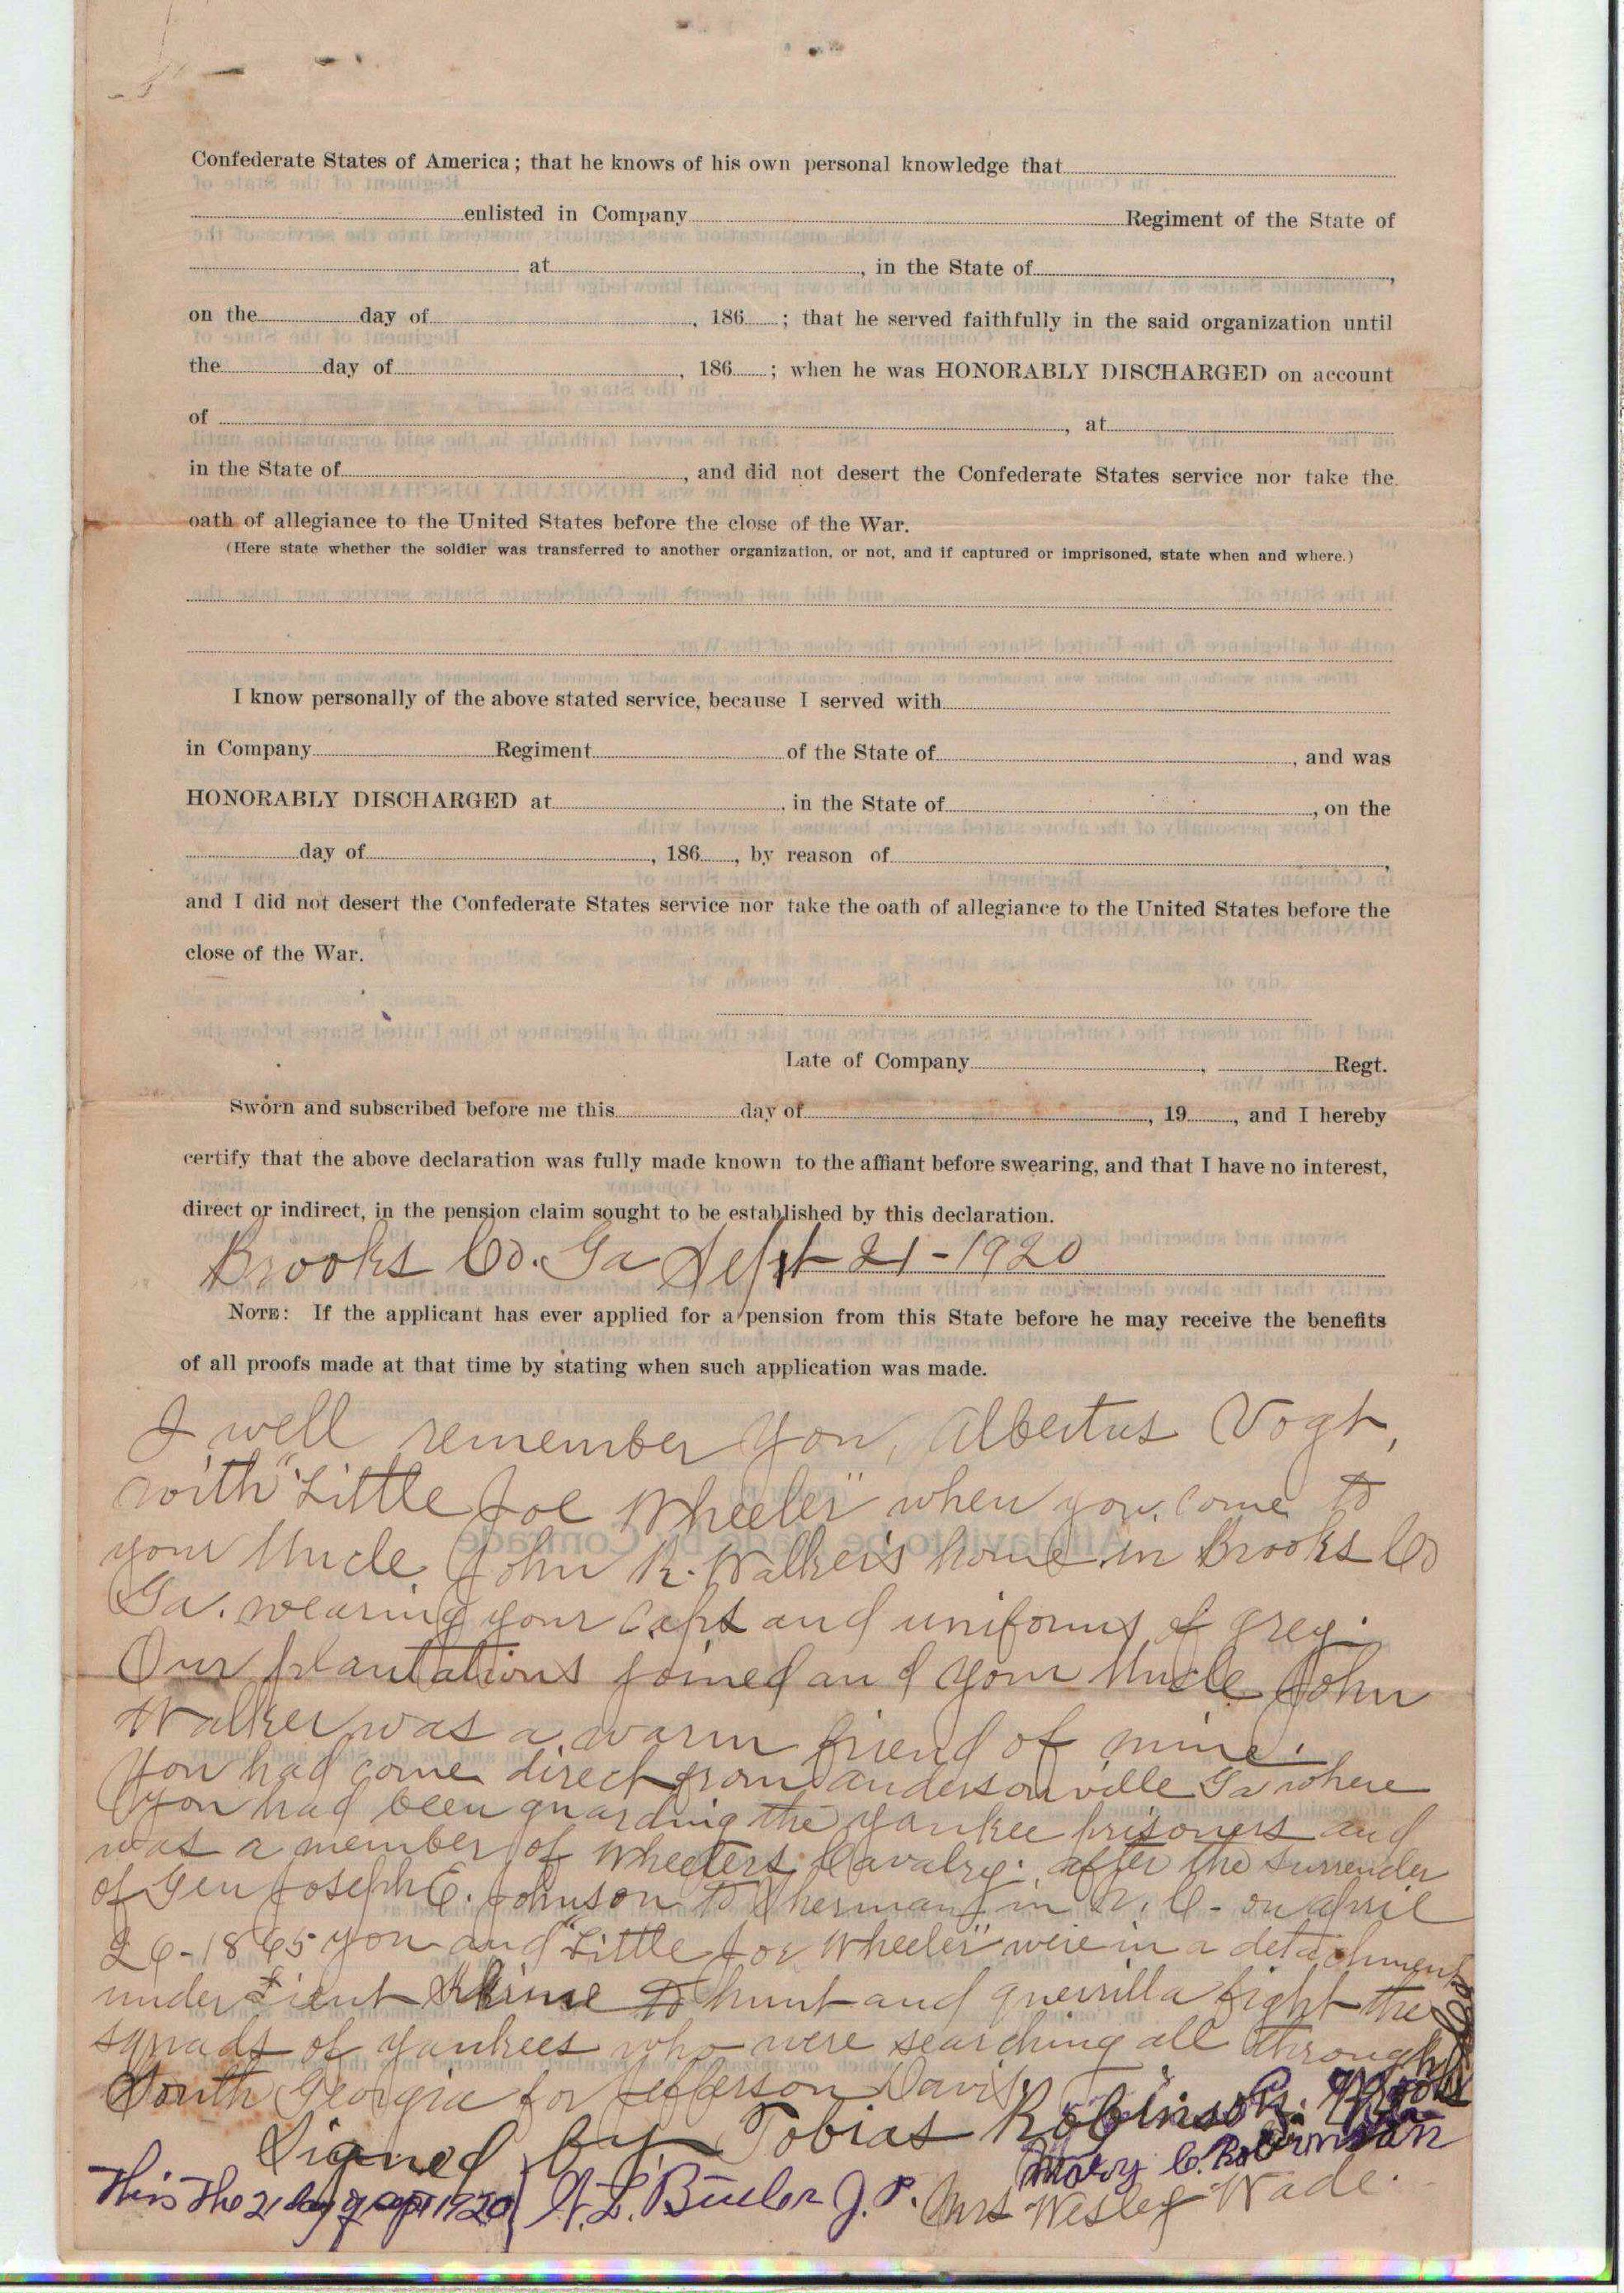 Confederate States of America; that he knows of his own personal knowledge that
enlisted in Company Regiment of the State of
at , in the State of ,
on the day of , 186 ; that he served faithfully in the said organization until
the day of , 186 ; when he was HONORABLY DISCHARGED on account
of , at
in the State of , and did not desert the Confederate States service nor take the
oath of allegiance to the United States before the close of the War.
(Here state whether the soldier was transferred to another organization, or not, and if captured or imprisoned, state when and where.)
I know personally of the above stated service, because I served with
in Company Regiment of the State of , and was
HONORABLY DISCHARGED at , in the State of , on the
day of , 186 , by reason of ,
and I did not desert the Confederate States service nor take the oath of allegiance to the United States before the
close of the War.
Late of Company , Regt.
Sworn and subscribed before me this day of , 19 , and I hereby
certify that the above declaration was fully made known to the affiant before swearing, and that I have no interest,
direct or indirect, in the pension claim sought to be established by this declaration.
Brooks Co. Ga Sept 21-1920
NOTE: If the applicant has ever applied for a pension from this State before he may receive the benefits
of all proofs made at that time by stating when such application was made.
I well remember you, Albertus Vogt,
with "Little Joe Wheeler" when you come to
your Uncle John R. Walker's home in Brooks Co
Ga. wearing your caps and uniforms of grey.
Our plantations joined and your Uncle John
Walker was a warm friend of mine.
You had come direct from Andersonville Ga where
you had been guarding the Yankee prisoners and
was a member of Wheelers Cavalry. after the surrender
of Gen Joseph E. Johnson to Sherman in N.C. on April
26-1865 you and "Little Joe Wheeler" were in a detachment
under Lieut to hunt and guerrilla fight the
squads of Yankees who were searching all through
South Georgia for Jefferson Davis.
Signed by Tobias Robinson
Mary C. Robinson
This the 21 day of 1920 Butler J. P. Mrs Wesley Wade.